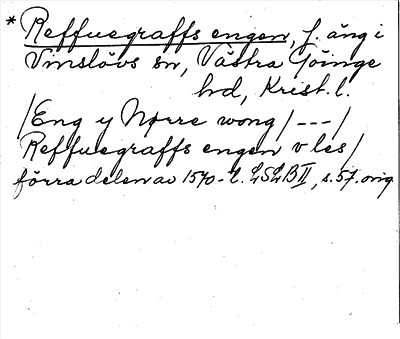 * Reffuegraffs engen, f. äng i
Vinslövs sn, Västra Göinge
hd, Krist. l.
/Eng y Nørre wong/---/
Reffuegraffs engen v les/
förra delen av 1570-t. LSLB II, s. 57. orig